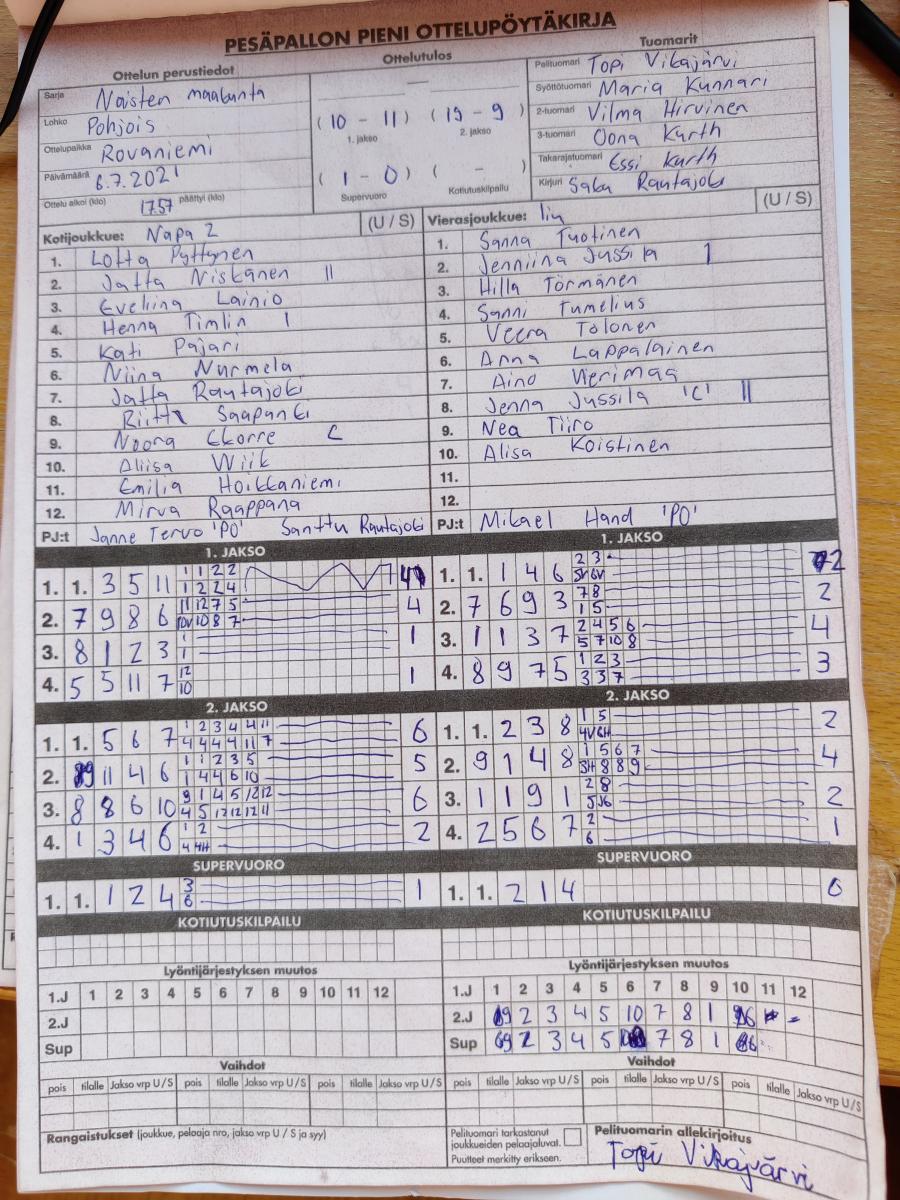 PESÄPALLON PIENI OTTELUPÖYTÄKIRJA
Ottelun perustiedot
Sarja Naisten maakunta
Lohko Pohjois
Ottelupaikka Rovaniemi
Päivämäärä 6.7.2021
Ottelu alkoi (klo) 17.57 päättyi (klo)
Ottelutulos
( 10 - 11 ) ( 19 - 9 )
1. jakso 2. jakso
( 1 - 0 ) ( - )
Supervuoro Kotiutuskilpailu
Tuomarit
Pelituomari Topi Vikajärvi
Syöttötuomari Maria Kunnari
2-tuomari Vilma Hirvinen
3-tuomari Oona Kurth
Takarajatuomari Essi Kurth
Kirjuri Saku Rautajoki
Kotijoukkue: Napa 2 (U / S)
1. Lotta Pyttynen
2. Jatta Niskanen II
3. Eveliina Lainio
4. Henna Timlin I
5. Kati Pajari
6. Niina Nurmela
7. Jatta Rautajoki
8. Riitta Saapunki
9. Noora Ekorre C
10. Aliisa Wiik
11. Emilia Hoikkaniemi
12. Mirva Raappana
PJ:t Janne Tervo 'PO' Santtu Rautajoki
Vierasjoukkue: Iiu (U / S)
1. Sanna Tuotinen
2. Jenniina Jussila I
3. Hilla Törmänen
4. Sanni Tumelius
5. Veera Tolonen
6. Anna Lappalainen
7. Aino Merimaa
8. Jenna Jussila 'C' II
9. Nea Tiiro
10. Alisa Koistinen
11.
12.
PJ:t Mikael Hand 'PO'
1. JAKSO
1. 1. 3 5 11 1 1 2 2 4
1 2 2 4
2. 7 9 8 6 11 12 7 5 4
10V 10 8 7
3. 8 1 2 3 1 1
1
4. 5 5 11 7 12 1
10
1. JAKSO
1. 1. 1 4 6 2 3 2
5V 6V
2. 7 6 9 3 7 8 2
1 5
3. 1 1 3 7 2 4 5 6 4
5 7 10 8
4. 8 9 7 5 1 2 3 3
3 3 7
2. JAKSO
1. 1. 5 6 7 1 2 3 4 4 11 6
4 4 4 4 11 7
2. 9 11 4 6 1 1 2 3 5 5
1 4 4 6 10
3. 8 8 6 10 9 1 4 5 12 12 6
4 5 12 12 12 11
4. 1 3 4 6 1 2 2
4 4H
2. JAKSO
1. 1. 2 3 8 1 5 2
4V 6H
2. 9 1 4 8 1 5 6 7 4
3H 8 8 9
3. 1 1 9 1 2 8 2
5 J6
4. 2 5 6 7 2 1
6
SUPERVUORO
1. 1. 1 2 4 3 1
6
SUPERVUORO
1. 1. 2 1 4 0
KOTIUTUSKILPAILU
KOTIUTUSKILPAILU
Lyöntijärjestyksen muutos
1.J 1 2 3 4 5 6 7 8 9 10 11 12
2.J
Sup
Lyöntijärjestyksen muutos
1.J 1 2 3 4 5 6 7 8 9 10 11 12
2.J 9 2 3 4 5 10 7 8 1 6 -
Sup 9 2 3 4 5 7 8 1 6
Vaihdot
pois tilalle Jakso vrp U / S pois tilalle Jakso vrp U / S pois tilalle Jakso vrp U / S
Vaihdot
pois tilalle Jakso vrp U / S pois tilalle Jakso vrp U / S pois tilalle Jakso vrp U / S
Rangaistukset (joukkue, pelaaja nro, jakso vrp U / S ja syy)
Pelituomari tarkastanut
joukkueiden pelaajaluvat.
Puutteet merkitty erikseen.
Pelituomarin allekirjoitus
Topi Vikajärvi